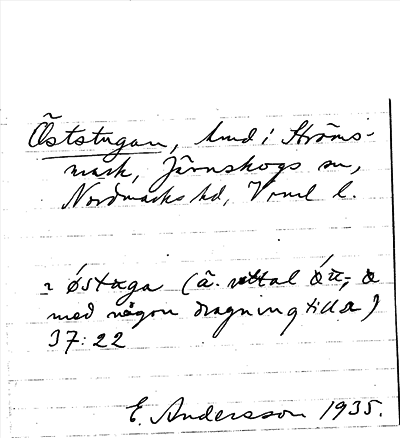 Öststugan, hmd i Ströms-
mark, Järnskogs sn,
Nordmarks hd, Vrml l.
östuga (ä. uttal
med någon dragning till a)
37:22
E. Andersson 1935.